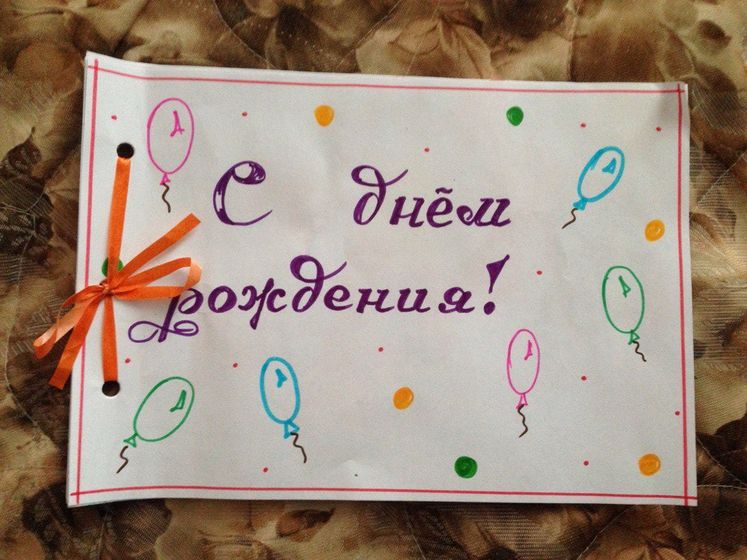 С днём
рождения!